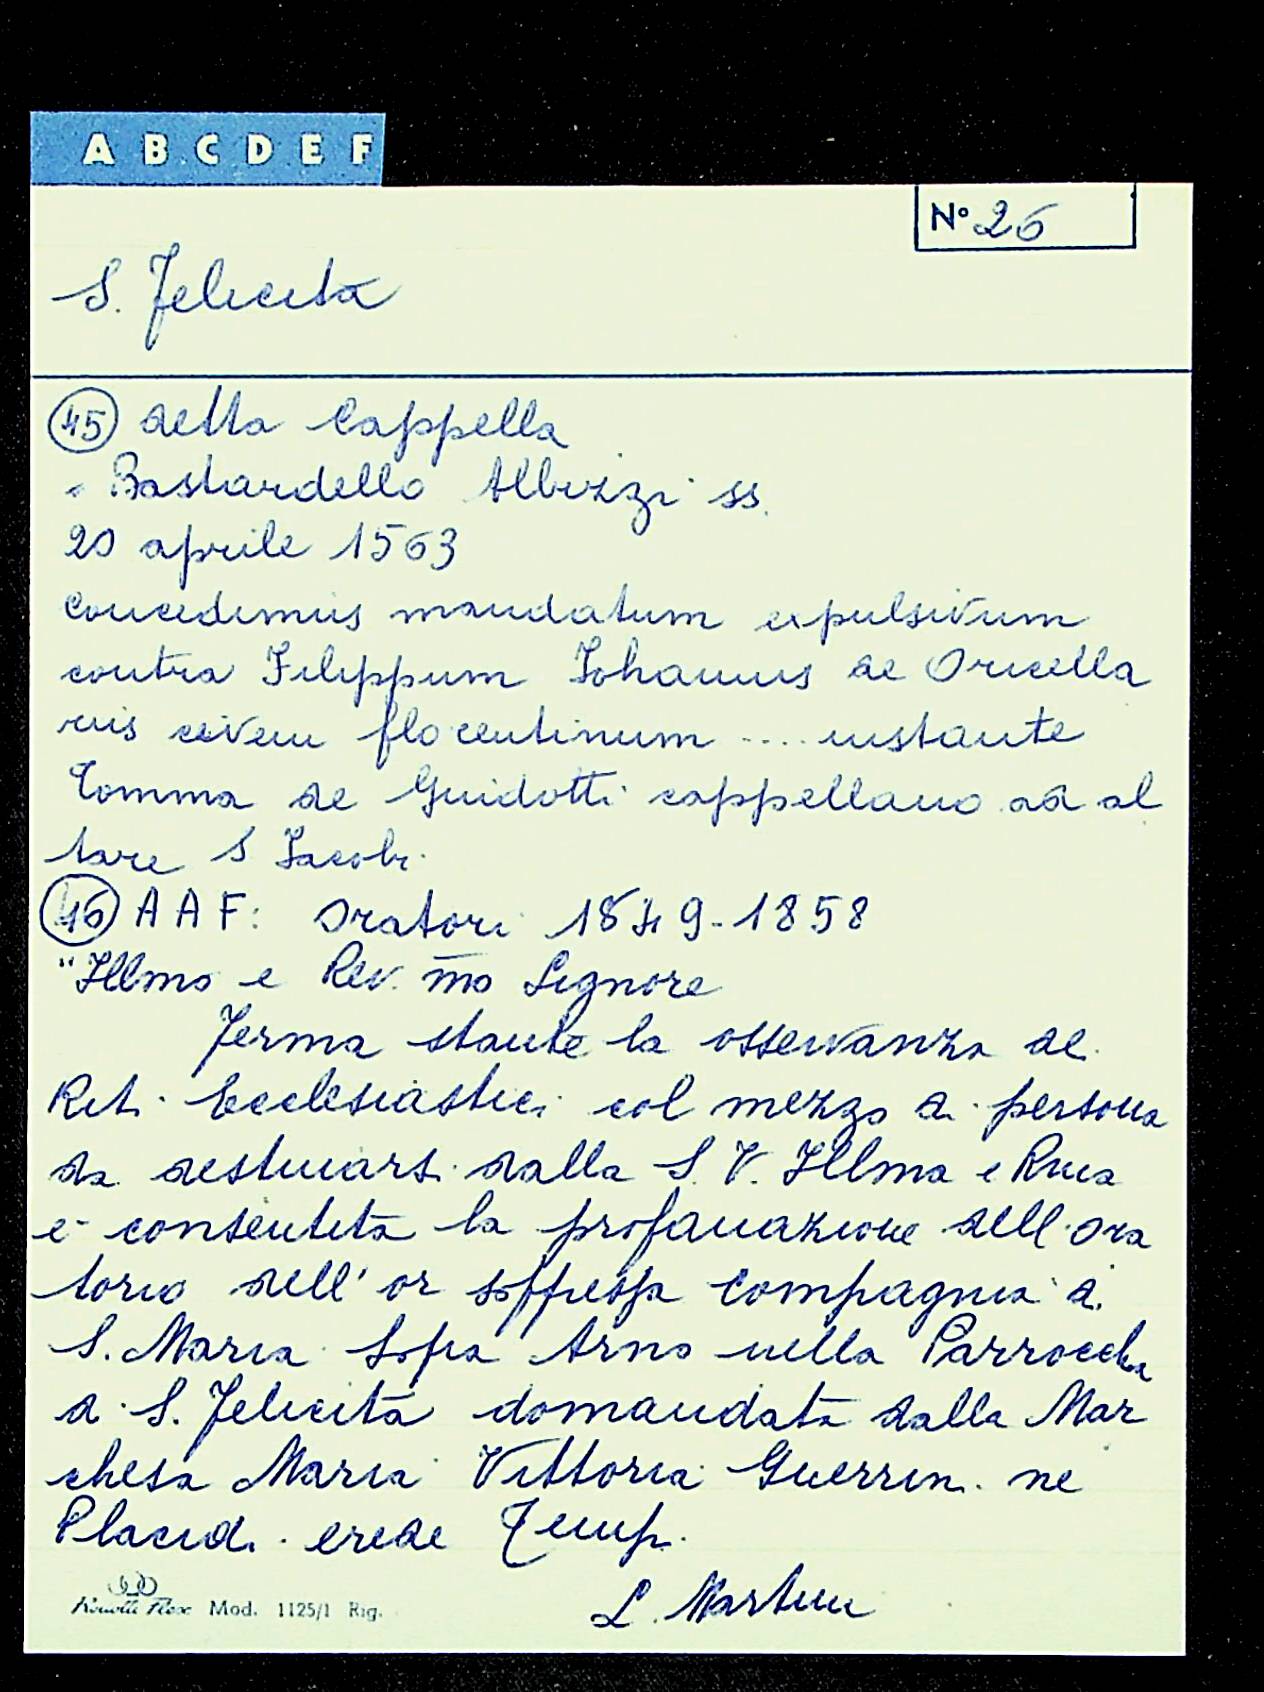 A B C D E F
N° 26
S. Felicita
45 detta Cappella
" Bastardello Albizzi ss.
20 aprile 1563
concedimus mandatum expulsivum
contra Filippum Johannis de Oricella
riis civem florentinum .... instante
Tomma de Guidotti cappellano ad al
tare S Jacobi.
46 AAF: Oratori 1849-1858
"Illmo e Rev.mo Signore
Ferma stante la osservanza dei
Riti Ecclesiastici col mezzo di persona
da destinarsi dalla S. V. Illma e Rma
è consentita la profanazione dell'Ora
torio dell' or soppressa Compagnia di
S. Maria Sopra Arno nella Parrocchia
di S. Felicità domandata dalla Mar
chesa Maria Vittoria Guerrini ne
Placidi erede Tempi.
L. Martini
Mod. 1125/1 Rig.